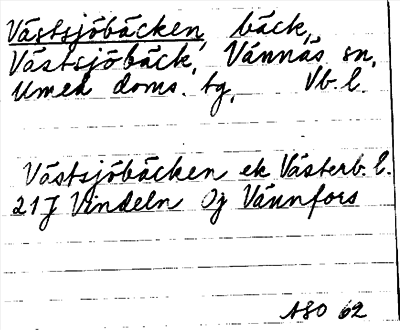 Västsjöbäcken, bäck,
Västsjöbäck, Vännäs sn,
Umeå doms. tg, Vb. l.
Västsjöbäcken ek Västerb. l.
21J Vindeln Öj Vännfors
ASO 62